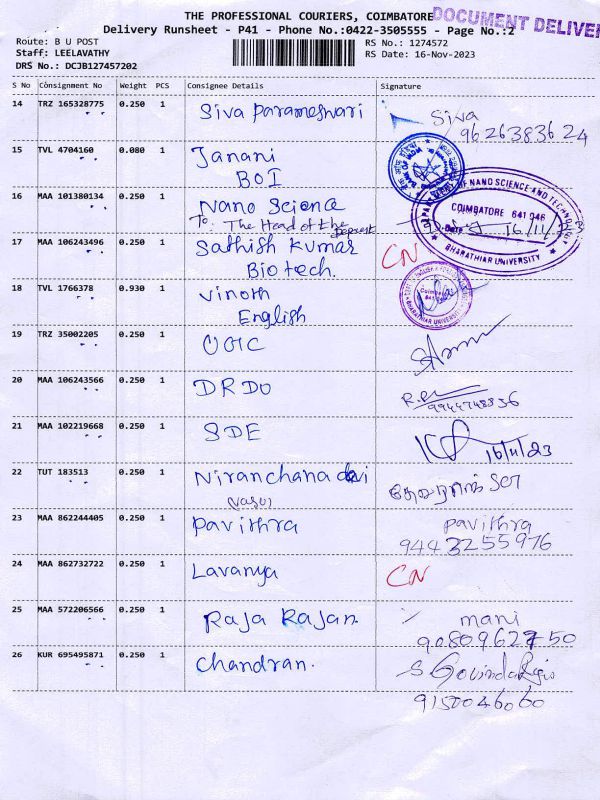 THE PROFESSIONAL COURIERS, COIMBATORE
DOCUMENT DELIVER
Delivery Runsheet - P41 - Phone No.:0422-3505555 - Page No.:2
Route: B U POST
Staff: LEELAVATHY
DRS No.: DCJB127457202
RS No.: 1274572
RS Date: 16-Nov-2023
S No Consignment No Weight PCS Consignee Details Signature
14 TRZ 165328775 0.250 1 Siva Parameswari Siva
9626383624
15 TVL 4704160 0.080 1 Janani
BOI
BANK OF INDIA
16 MAA 101380134 0.250 1 Nano Science
To: The Head of the
OF NANO SCIENCE AND TECHNOLOGY
COIMBATORE 641 046
DATE 16/11/23
BHARATHIAR UNIVERSITY
17 MAA 106243496 0.250 1 Sathish Kumar CN
Biotech.
18 TVL 1766378 0.930 1 Vinoth
English
BHARATHIAR UNIVERSITY
19 TRZ 35002205 0.250 1 UGC
20 MAA 106243566 0.250 1 DRDO
9944748336
21 MAA 102219668 0.250 1 SDE 16/11/23
22 TUT 183513 0.250 1 Niranchana devi
23 MAA 862244405 0.250 1 Pavithra Pavithra
9443255976
24 MAA 862732722 0.250 1 Lavanya CN
25 MAA 572206566 0.250 1 Raja Rajan mani
26 KUR 695495871 0.250 1 Chandran. S Govinda
9150046060